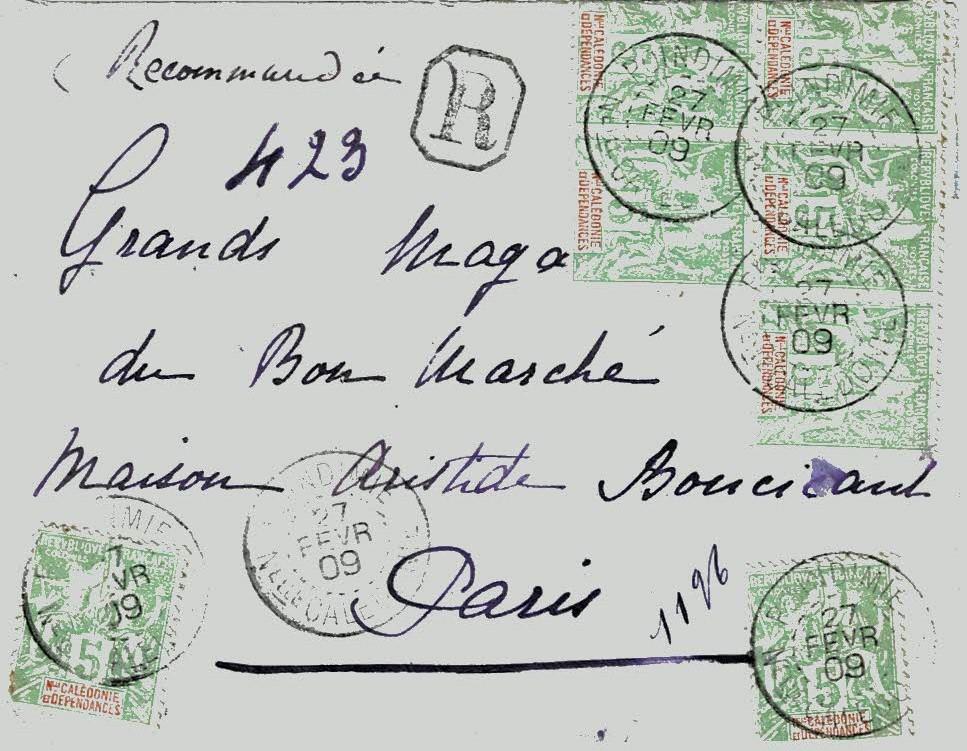 Recommandée
R
423
Grands Maga
du Bon Marché
Maison Aristide Boucicaut
Paris
1196
Nlle CALÉDONIE
ET DÉPENDANCES
POINDIMIE
27
FEVR
09
POINDIMIE
27
FEVR
09
Nlle CALÉDONIE
ET DÉPENDANCES
Nlle CALÉDONIE
ET DÉPENDANCES
27
FEVR
09
Nlle CALÉDONIE
ET DÉPENDANCES
27
FEVR
09
REPUBLIQUE FRANÇAISE
COLONIES
VR
09
5
Nlle CALÉDONIE
ET DÉPENDANCES
27
FEVR
09
5
Nlle CALÉDONIE
ET DÉPENDANCES